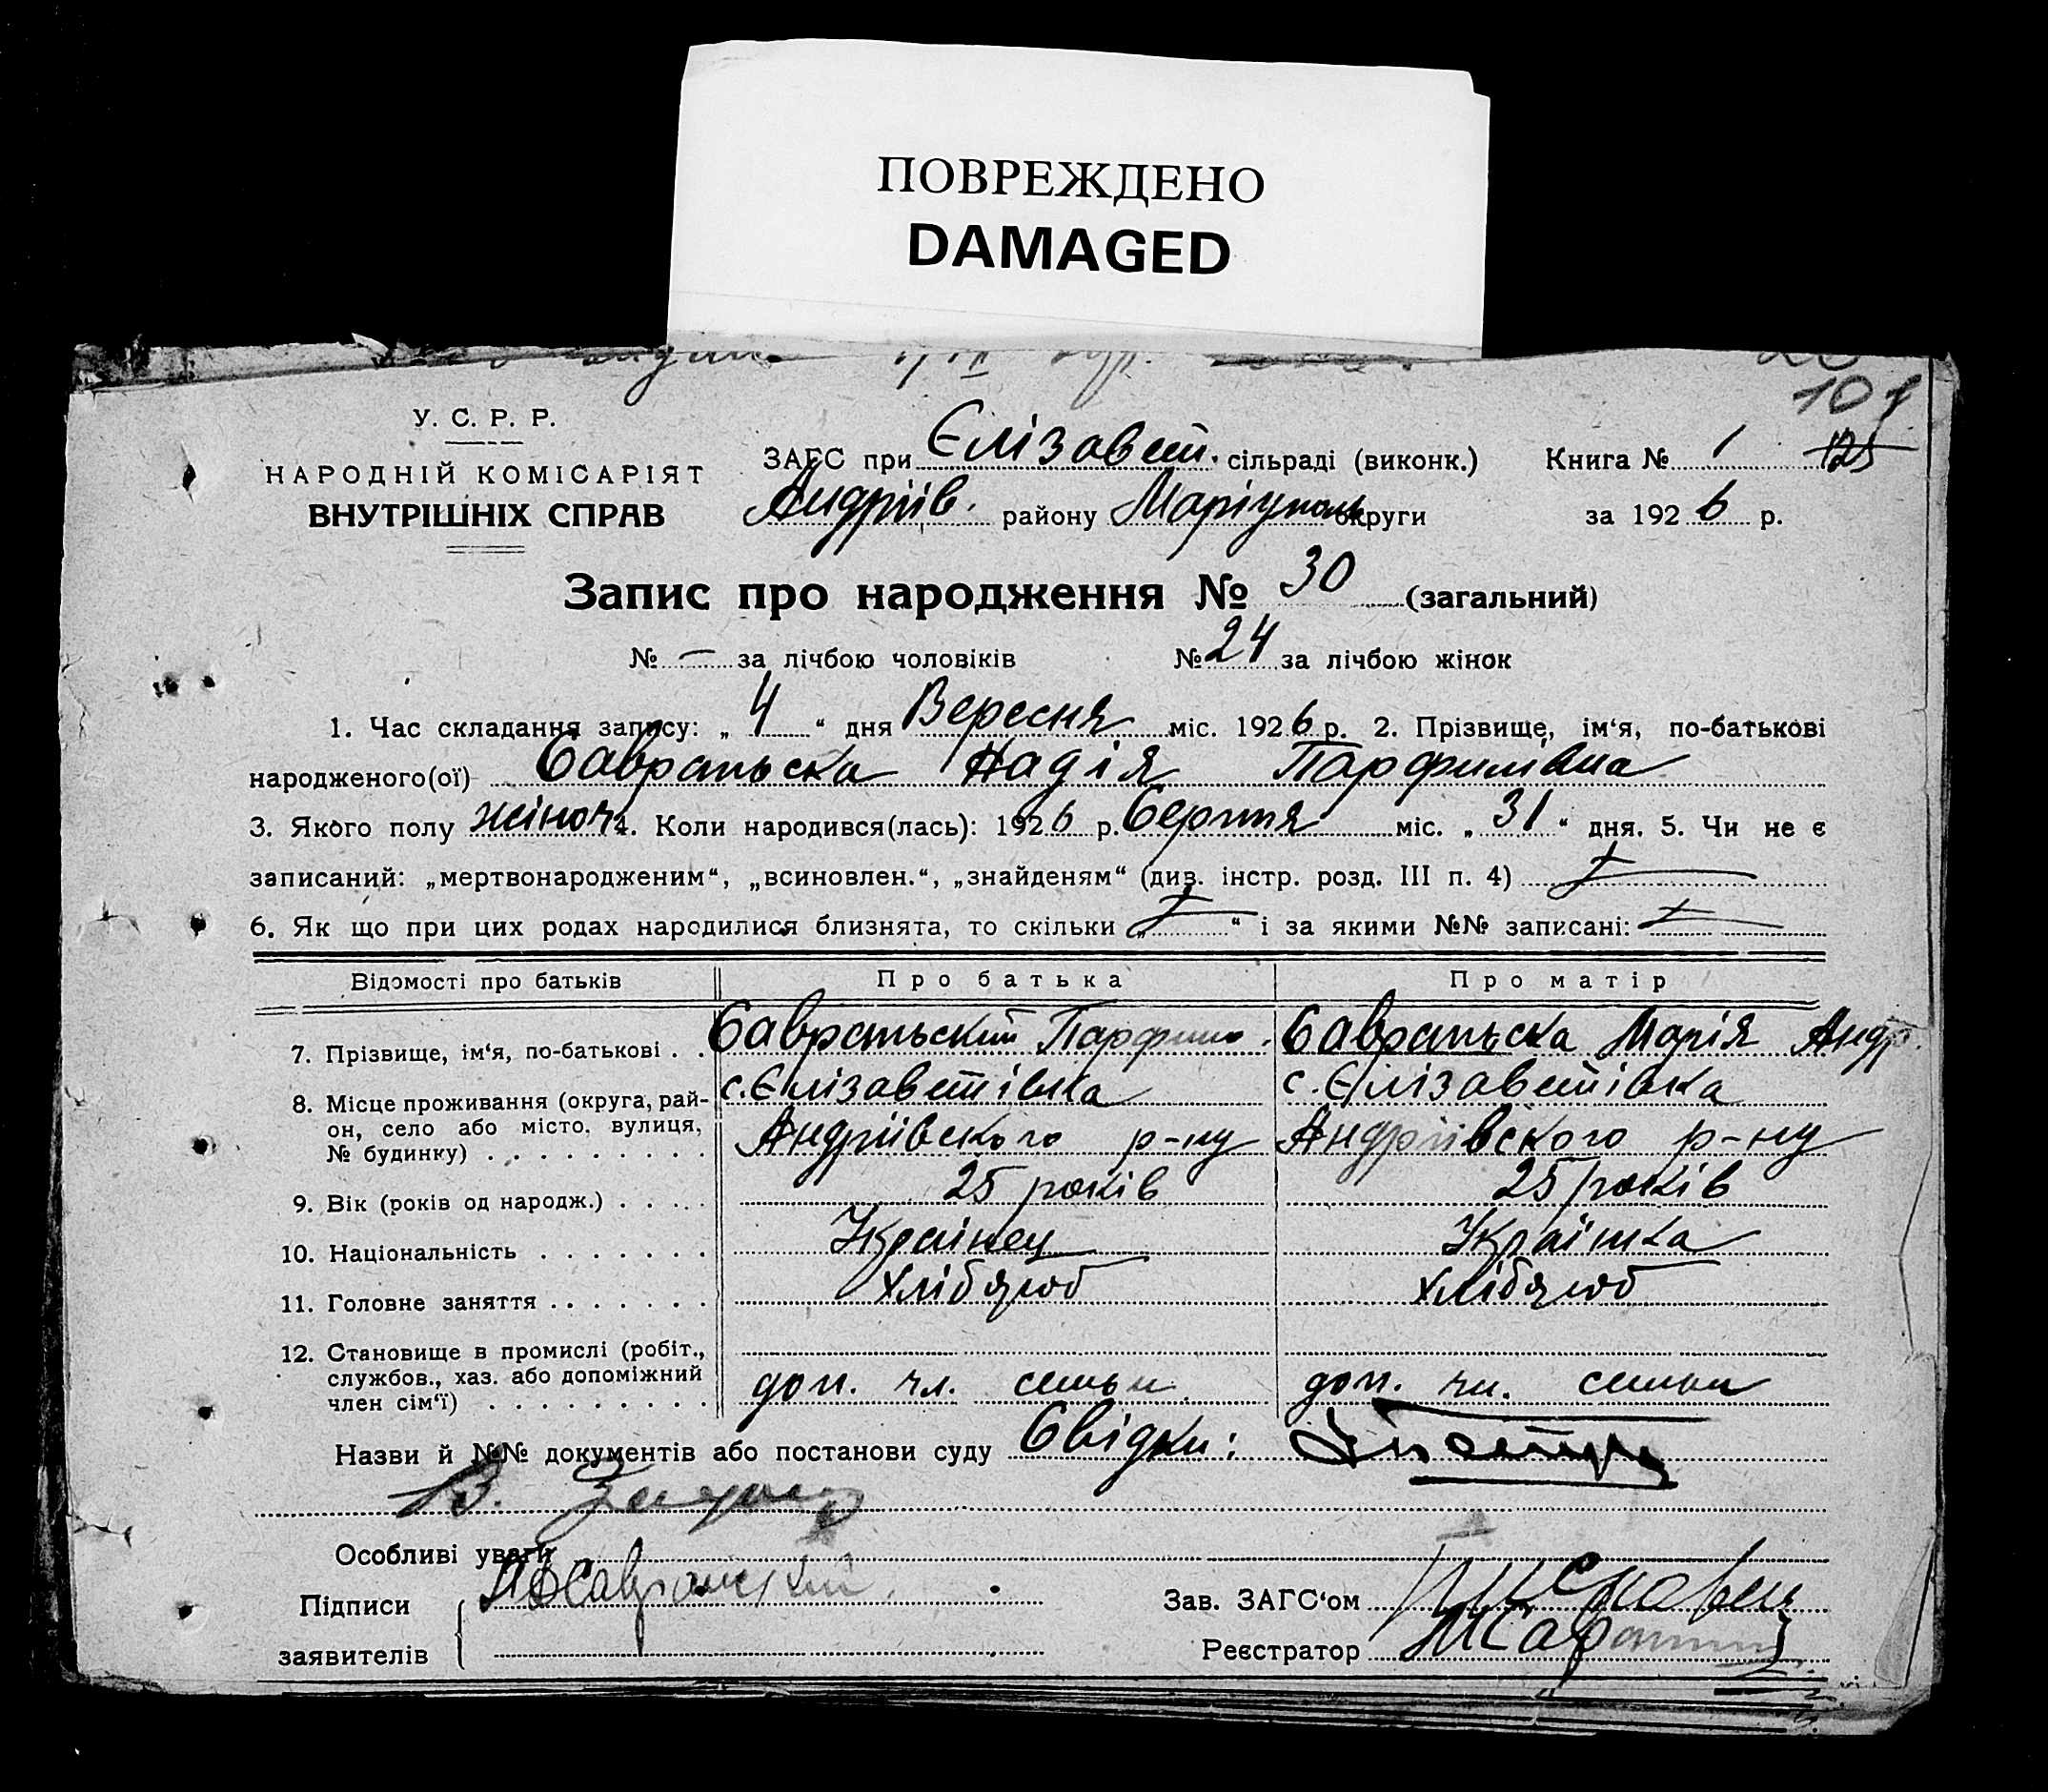 ПОВРЕЖДЕНО
DAMAGED
107
У. С. Р. Р.
НАРОДНІЙ КОМІСАРІЯТ
ВНУТРІШНІХ СПРАВ
ЗАГС при Єлізавет. сільраді (виконк.) Книга № 1 125
Андріїв. району Маріуполь округи за 1926 р.
Запис про народження № 30 (загальний)
№ — за лічбою чоловіків № 24 за лічбою жінок
1. Час складання запису: „ 4 “ дня Вересня міс. 1926 р. 2. Прізвище, ім‘я, по-батькові
народженого(ої) Савранська Надія Парфилівна
3. Якого полу жіноч 4. Коли народився(лась): 1926 р. Серпня міс. „ 31 “ дня. 5. Чи не є
записаний: „мертвонародженим“, „всиновлен.“, „знайденям“ (див. інстр. розд. III п. 4)
6. Як що при цих родах народилися близнята, то скільки „ “ і за якими №№ записані:
Відомості про батьків Про батька Про матір
7. Прізвище, ім‘я, по-батькові . . Савранський Савранська Марія Андр.
8. Місце проживання (округа, рай- с. Єлізаветівка с. Єлізаветівка
он, село або місто, вулиця, Андріївского р-ну Андріївского р-ну
№ будинку) . . . . . . . . .
9. Вік (років од народж.) . . . . . 25 років 25 років
10. Національність . . . . . . . Украінец Украінка
11. Головне заняття . . . . . . . хлібороб хлібороб
12. Становище в промислі (робіт.,
службов., хаз. або допоміжний доп. чл. семьи доп. чл. семьи
член сім‘ї) . . . . . . . . .
Назви й №№ документів або постанови суду Свідки:
В.
Особливі уваги
Підписи Савранский Зав. ЗАГС‘ом
заявителів Реєстратор